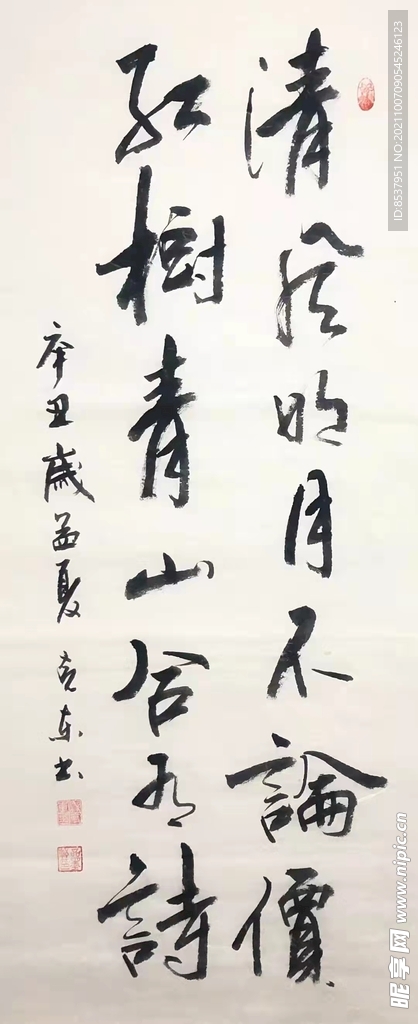 清風明月不論價
紅樹青山合有詩
辛丑歲孟夏克東书
ID:8537951 NO:20211007090545246123
昵享网 www.nipic.cn